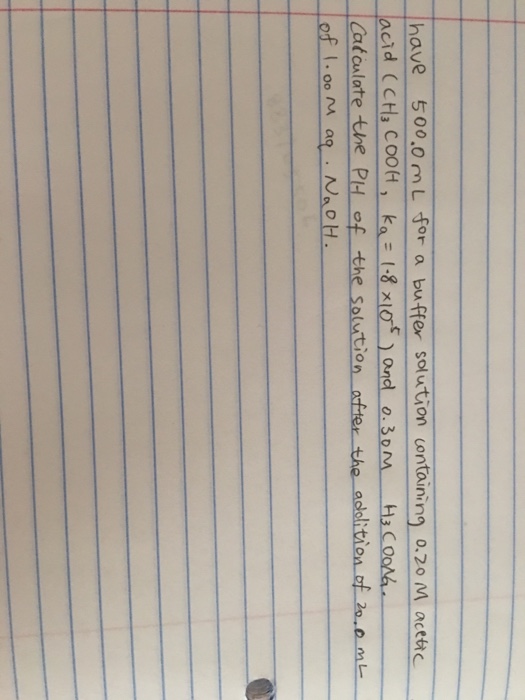 have 500.0 mL for a buffer solution containing 0.20 M acetic
acid (CH₃COOH, ka = 1.8 x10⁻⁵) and 0.30M H₃COONa.
Calculate the PH of the solution after the addition of 20.0 mL
of 1.00 M aq. NaOH.